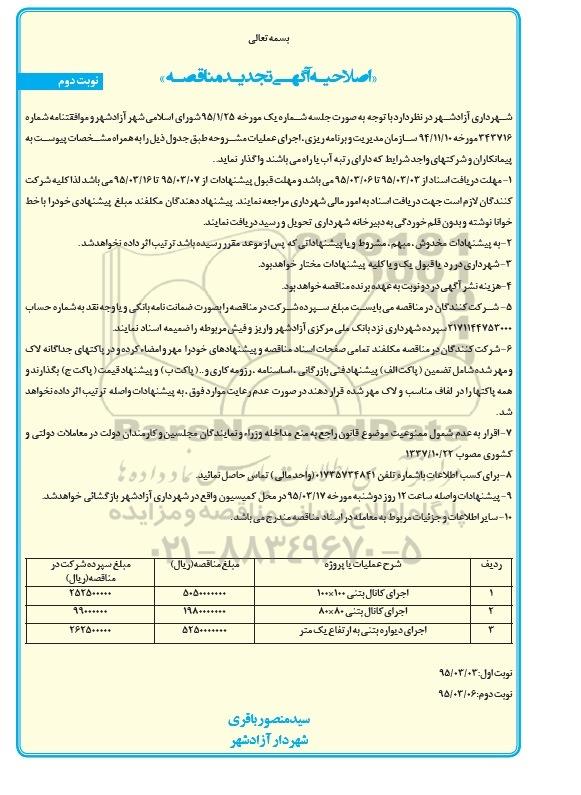 بسمه تعالی
«اصلاحیه آگهی تجدید مناقصه»
نوبت دوم
شهرداری آزادشهر در نظر دارد با توجه به صورت جلسه شماره یک مورخه ۹۵/۱/۲۵ شورای اسلامی شهر آزادشهر و موافقتنامه شماره
۳۴۳۷۱۶ مورخه ۹۴/۱۱/۱۰ سازمان مدیریت و برنامه ریزی ، اجرای عملیات مشروحه طبق جدول ذیل را به همراه مشخصات پیوست به
پیمانکاران و شرکتهای واجد شرایط که دارای رتبه آب یا راه می باشند واگذار نماید..
۱- مهلت دریافت اسناد از ۹۵/۰۳/۰۳ تا ۹۵/۰۳/۰۶ می باشد و مهلت قبول پیشنهادات از ۹۵/۰۳/۰۷ تا ۹۵/۰۳/۱۶ می باشد لذا کلیه شرکت
کنندگان لازم است جهت دریافت اسناد به امور مالی شهرداری مراجعه نمایند. پیشنهاد دهندگان مکلفند مبلغ پیشنهادی خود را با خط
خوانا نوشته و بدون قلم خوردگی به دبیرخانه شهرداری تحویل و رسید دریافت نمایند.
۲- به پیشنهادات مخدوش ، مبهم ، مشروط و یا پیشنهاداتی که پس از موعد مقرر رسیده باشد ترتیب اثر داده نخواهد شد.
۳- شهرداری در رد یا قبول یک و یا کلیه پیشنهادات مختار خواهد بود.
۴- هزینه نشر آگهی در دو نوبت به عهده برنده مناقصه خواهد بود.
۵- شرکت کنندگان در مناقصه می بایست مبلغ سپرده شرکت در مناقصه را بصورت ضمانت نامه بانکی و یا وجه نقد به شماره حساب
۲۱۷۱۱۴۴۷۵۳۰۰۰ سپرده شهرداری نزد بانک ملی مرکزی آزادشهر واریز و فیش مربوطه را ضمیمه اسناد نمایند.
۶- شرکت کنندگان در مناقصه مکلفند تمامی صفحات اسناد مناقصه و پیشنهادهای خود را مهر و امضاء کرده و در پاکتهای جداگانه لاک
و مهر شده شامل تضمین ( پاکت الف) پیشنهاد فنی بازرگانی ، اساسنامه ، رزومه کاری و.. ( پاکت ب ) و پیشنهاد قیمت ( پاکت ج) بگذارند و
همه پاکتها را در لفاف مناسب و لاک مهر شده قرار دهند در صورت عدم رعایت موارد فوق ، به پیشنهادات واصله ترتیب اثر داده نخواهد
شد.
۷- اقرار به عدم شمول ممنوعیت موضوع قانون راجع به منع مداخله وزراء و نمایندگان مجلسین و کارمندان دولت در معاملات دولتی و
کشوری مصوب ۱۳۳۷/۱۰/۲۲
۸- برای کسب اطلاعات با شماره تلفن ۰۱۷۳۵۷۳۴۸۴۱ (واحد مالی) تماس حاصل نمائید.
۹- پیشنهادات واصله ساعت ۱۲ روز دوشنبه مورخه ۹۵/۰۳/۱۷ در محل کمیسیون واقع در شهرداری آزادشهر بازگشائی خواهد شد.
۱۰- سایر اطلاعات و جزئیات مربوط به معامله در اسناد مناقصه مندرج می باشد.
ParsNamadData
پایگاه اطلاع رسانی مناقصه و مزایده
۰۲۱-۸۸۳۴۹۶۷۰-۵
ردیف شرح عملیات یا پروژه مبلغ مناقصه(ریال) مبلغ سپرده شرکت در مناقصه(ریال)
۱ اجرای کانال بتنی ۱۰۰×۱۰۰ ۵۰۵۰۰۰۰۰۰۰ ۲۵۲۵۰۰۰۰۰
۲ اجرای کانال بتنی ۸۰×۸۰ ۱۹۸۰۰۰۰۰۰۰ ۹۹۰۰۰۰۰۰
۳ اجرای دیواره بتنی به ارتفاع یک متر ۵۲۵۰۰۰۰۰۰۰ ۲۶۲۵۰۰۰۰۰
نوبت اول: ۹۵/۰۳/۰۳
نوبت دوم: ۹۵/۰۳/۰۶
سیدمنصور باقری
شهردار آزادشهر